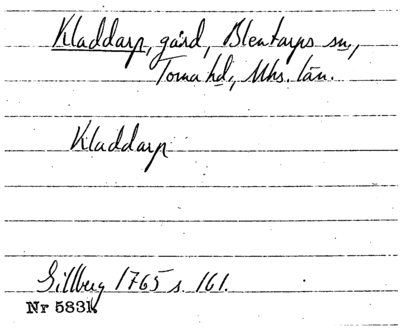 Kladdarp, gård, Blentarps sn,
Torna hd, Mhs. län.
Kladdarp
Gillberg 1765 s. 161.
Nr 5831.